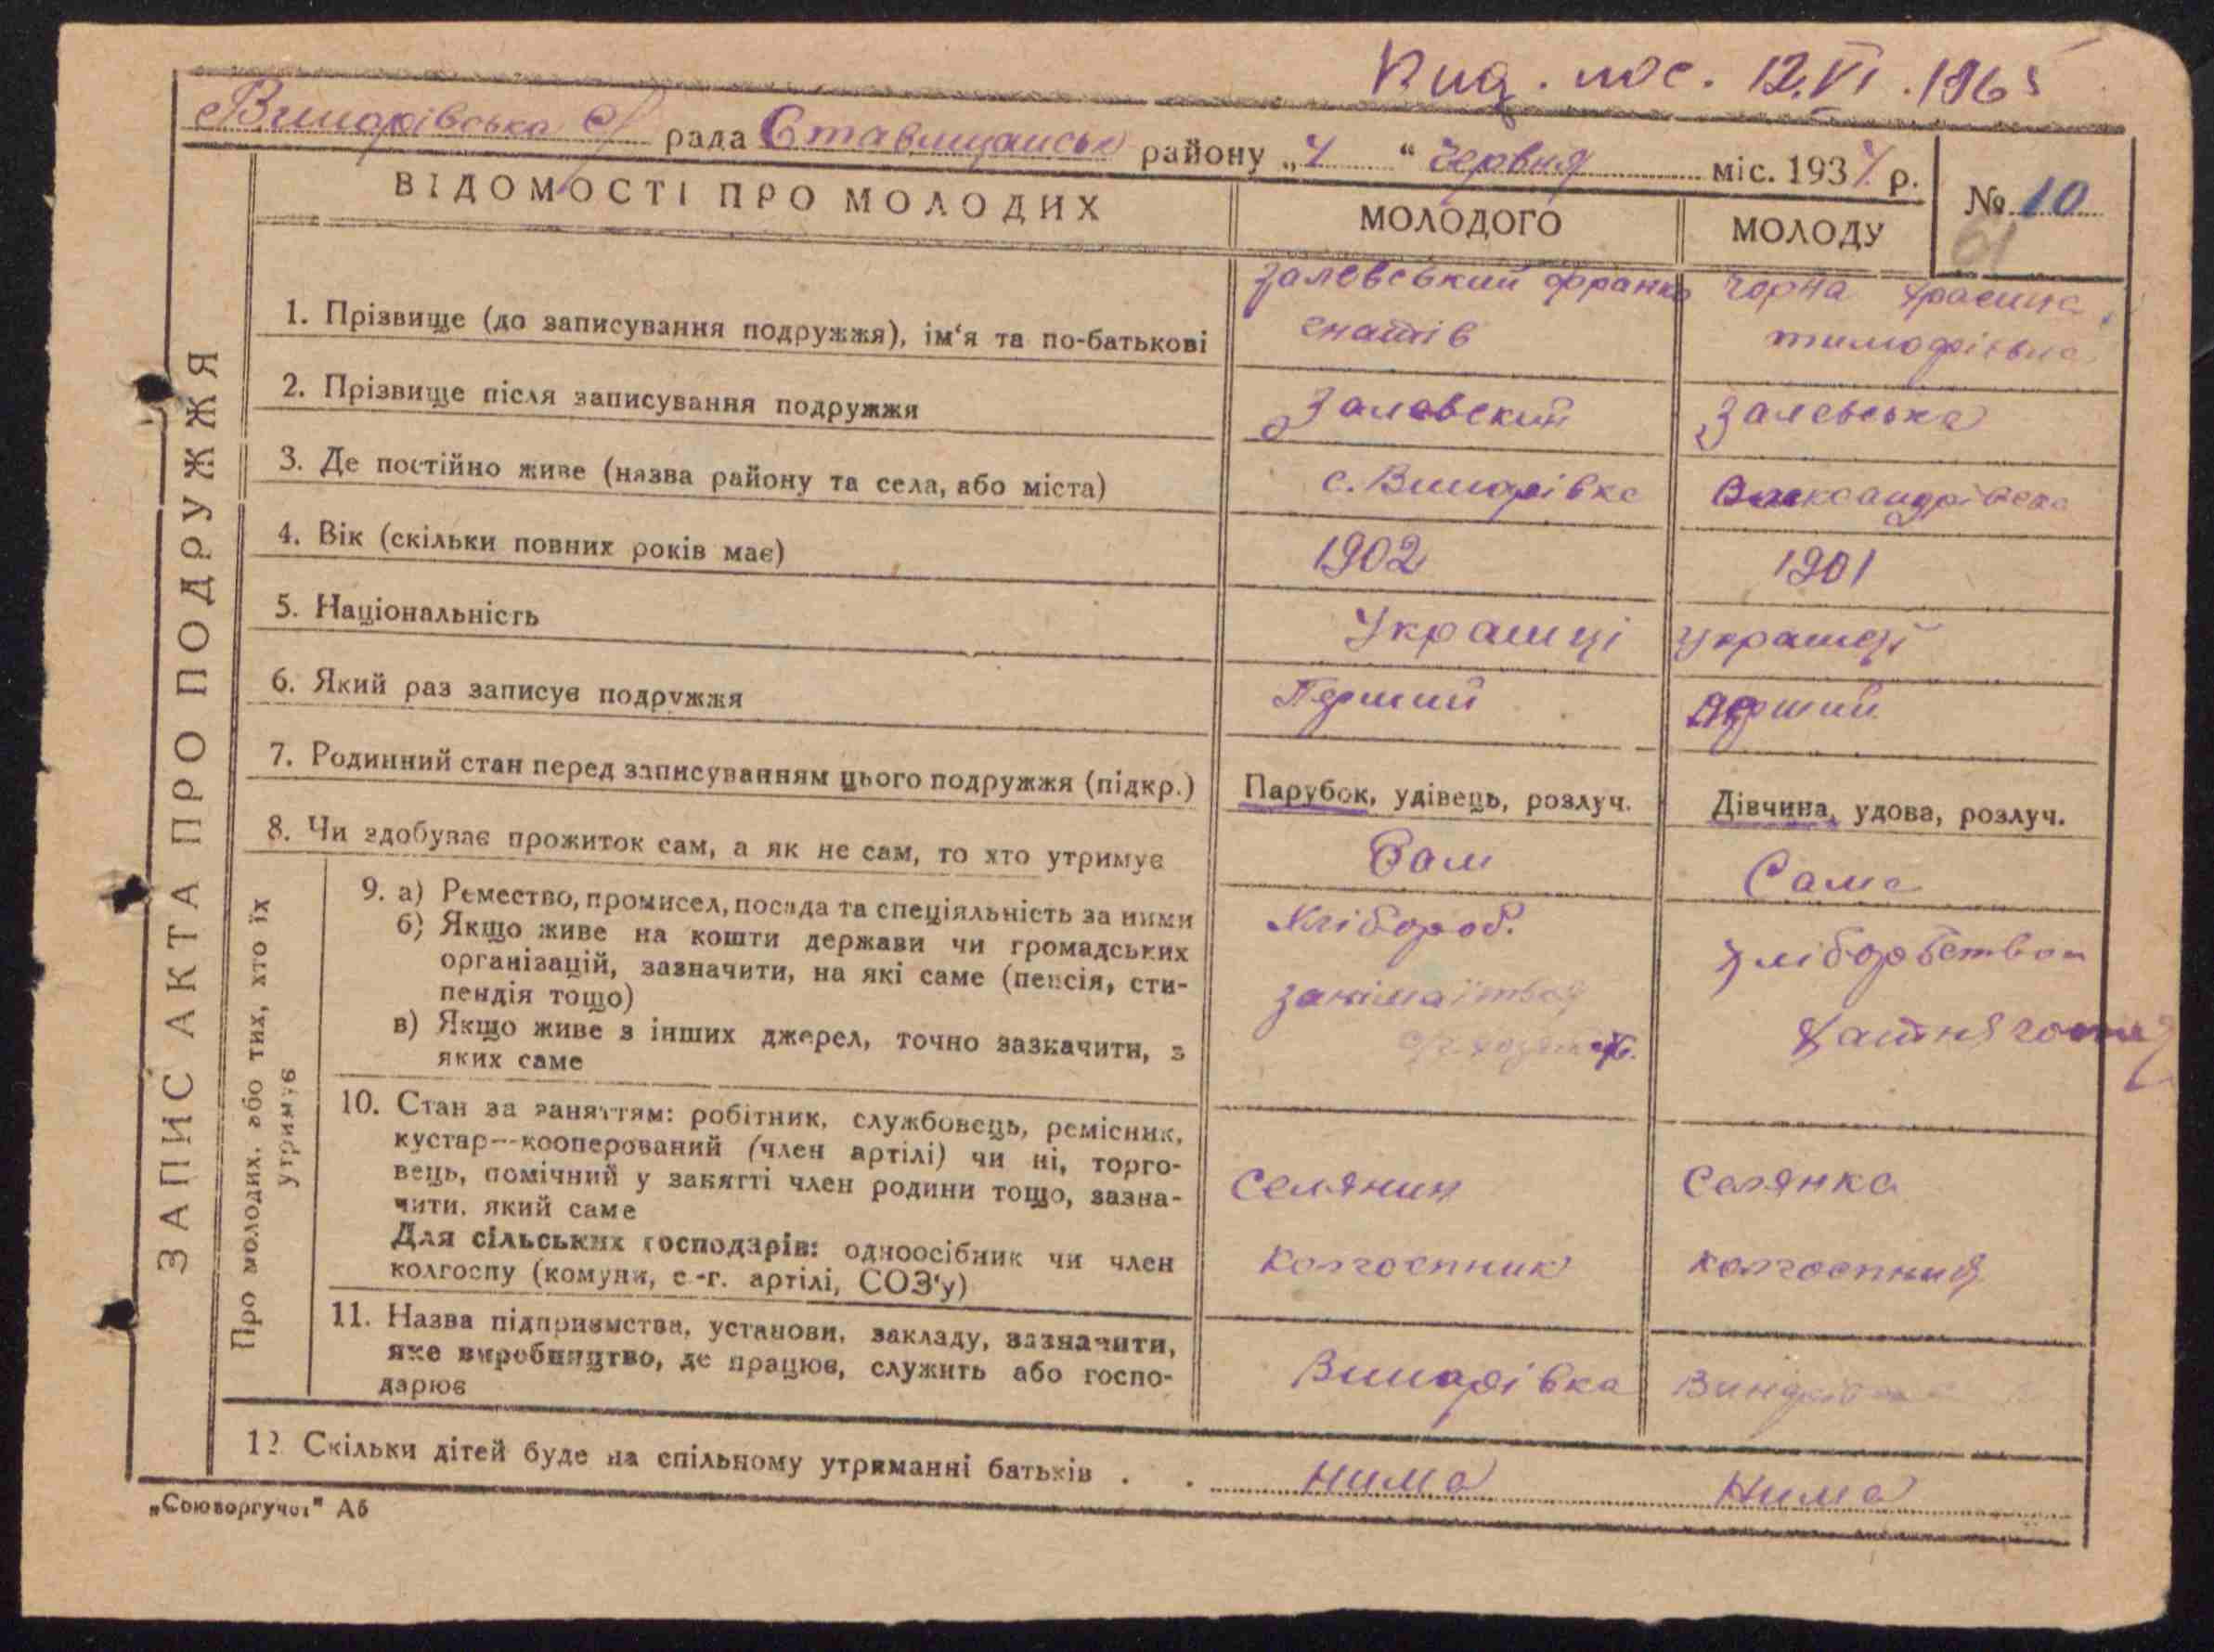 Вид. пос. 12.VI.1965
Винарівська с/ рада Ставищанськ району „4“ червня міс. 1934 р.
№ 10
ВІДОМОСТІ ПРО МОЛОДИХ
МОЛОДОГО
МОЛОДУ
ЗАПИС АКТА ПРО ПОДРУЖЖЯ
1. Прізвище (до записування подружжя), ім‘я та по-батькові
Залевський Франко
гнатів
Чорна
тимофіевна
2. Прізвище після записування подружжя
Залевский
Залевська
3. Де постійно живе (назва району та села, або міста)
с. Винарівка
Олександрівска
4. Вік (скільки повних років має)
1902
1901
5. Національність
Украінці
Украінці
6. Який раз записує подружжя
Перший
Перший
7. Родинний стан перед записуванням цього подружжя (підкр.)
Парубок, удівець, розлуч.
Дівчина, удова, розлуч.
8. Чи здобуває прожиток сам, а як не сам, то хто утримує
Сам
Сама
Про молодих, або тих, хто їх
утримує
9. а) Ремество, промисел, посада та спеціяльність за ними
б) Якщо живе на кошти держави чи громадських
організацій, зазначити, на які саме (пенсія, сти-
пендія тощо)
в) Якщо живе з інших джерел, точно зазначити, з
яких саме
Хлібороб.
хліборобством
10. Стан за заняттям: робітник, службовець, ремісник,
кустар—кооперований (член артілі) чи ні, торго-
вець, помічний у занятті член родини тощо, зазна-
чити, який саме
Для сільських господарів: одноосібник чи член
колгоспу (комуни, с.-г. артілі, СОЗ‘у)
Селянин
колгоспник
Селянка
колгоспниця
11. Назва підприємства, установи, закладу, зазначити,
яке виробництво, де працює, служить або госпо-
дарює
Винарівка
Винарівка
12. Скільки дітей буде на спільному утриманні батьків . .
нима
нима
„Союзоргучот“ А5